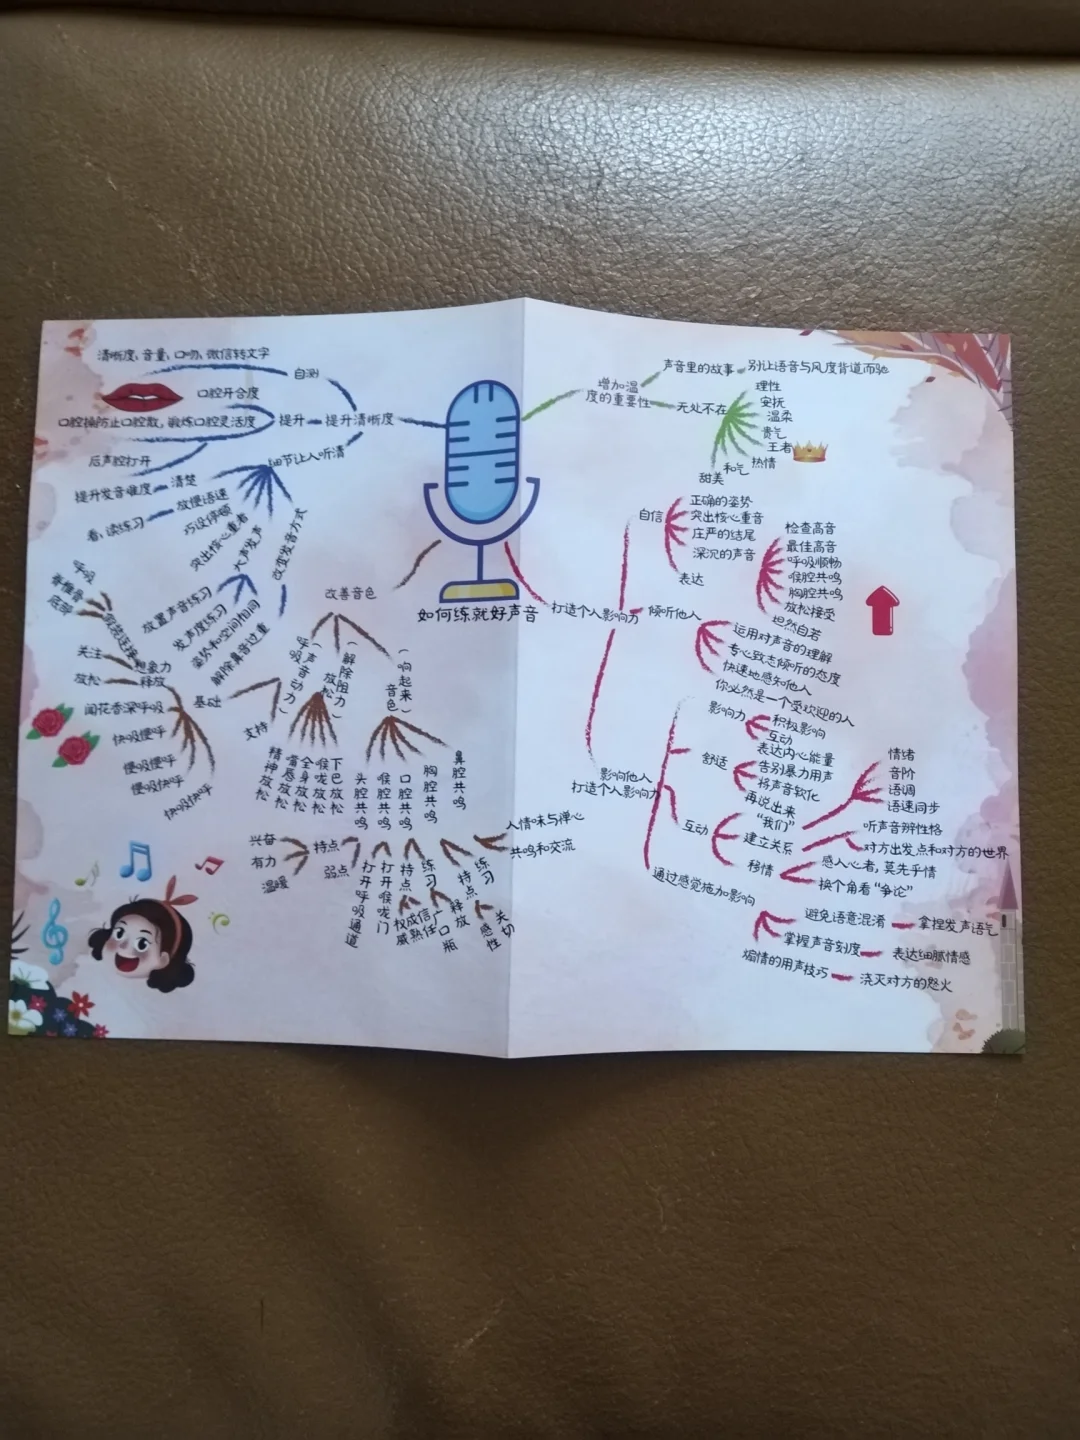 清晰度、音量、口吻、微信转文字
自测
口腔开合度
口腔操防止口腔散，锻炼口腔灵活度
提升
提升清晰度
后声腔打开
细节让人听清
提升发音难度
清楚
放慢语速
看，读练习
巧设停顿
突出核心重音
大声发声
改变发音方式
放置声音练习
发声度练习
姿势和空间相同
解除鼻音过重
呼吸
脊椎骨
底部
关注
想象力
放松
释放
闻花香深呼吸
快吸便呼
慢吸慢呼
慢吸快呼
快吸快呼
基础
支持
改善音色
呼吸
（声音动力）
放松
（解除阻力）
音色
（响起来）
精神放松
嘴唇放松
全身放松
喉咙放松
下巴放松
头腔共鸣
喉腔共鸣
口腔共鸣
胸腔共鸣
鼻腔共鸣
兴奋
有力
温暖
持点
弱点
打开呼吸通道
打开喉咙门
持点
练习
权威
成熟
信任
广口瓶
持点
释放
练习
感性
关切
人情味与禅心
共鸣和交流
如何练就好声音
增加温
度的重要性
声音里的故事
别让语音与风度背道而驰
无处不在
理性
安抚
温柔
贵气
王者
热情
和气
甜美
打造个人影响力
自信
正确的姿势
突出核心重音
庄严的结尾
深沉的声音
表达
检查高音
最佳高音
呼吸顺畅
喉腔共鸣
胸腔共鸣
放松接受
坦然自若
倾听他人
运用对声音的理解
专心致志倾听的态度
快速地感知他人
你必然是一个受欢迎的人
影响他人
打造个人影响力
影响力
积极影响
互动
舒适
表达内心能量
告别暴力用声
将声音软化
再说出来
互动
“我们”
建立关系
移情
情绪
音阶
语调
语速同步
听声音辨性格
对方出发点和对方的世界
感人心者，莫先乎情
换个角看“争论”
通过感觉施加影响
避免语意混淆
拿捏发声语气
掌握声音刻度
表达细腻情感
煽情的用声技巧
浇灭对方的怒火